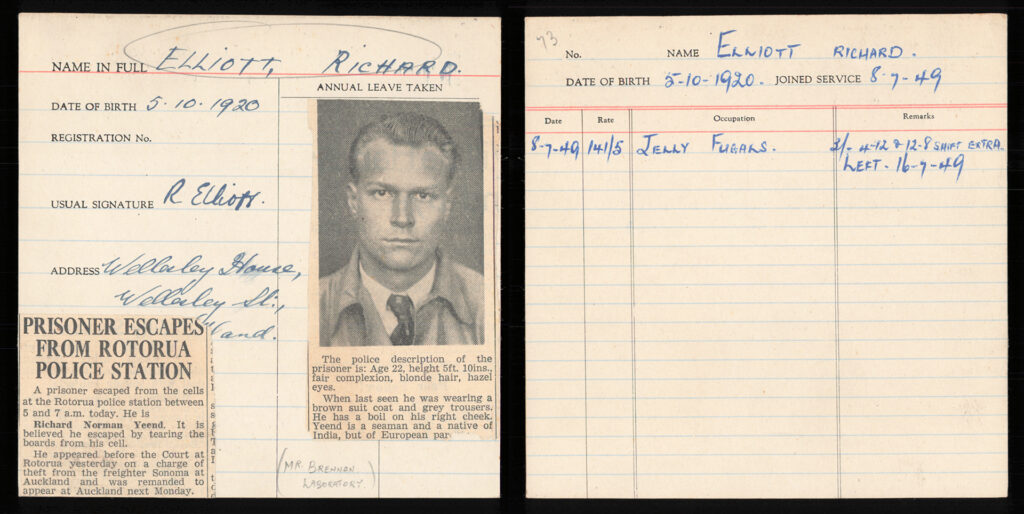 NAME IN FULL ELLIOTT, RICHARD.
ANNUAL LEAVE TAKEN
DATE OF BIRTH 5·10·1920
REGISTRATION No.
USUAL SIGNATURE R Elliott.
ADDRESS Wellesley House,
Wellesley St.,
PRISONER ESCAPES
FROM ROTORUA
POLICE STATION
A prisoner escaped from the cells
at the Rotorua police station between
5 and 7 a.m. today. He is
Richard Norman Yeend. It is
believed he escaped by tearing the
boards from his cell.
He appeared before the Court at
Rotorua yesterday on a charge of
theft from the freighter Sonoma at
Auckland and was remanded to
appear at Auckland next Monday.
The police description of the
prisoner is: Age 22, height 5ft. 10ins.,
fair complexion, blonde hair, hazel
eyes.
When last seen he was wearing a
brown suit coat and grey trousers.
He has a boil on his right cheek.
Yeend is a seaman and a native of
India, but of European par
(MR. BRENNAN
LABORATORY.)
73
No. NAME ELLIOTT RICHARD.
DATE OF BIRTH 5-10-1920. JOINED SERVICE 8-7-49
Date Rate Occupation Remarks
8-7-49 141/5 JELLY FUGALS. 2/- 4-12 & 12-8 SHIFT EXTRA.
LEFT. 16-7-49